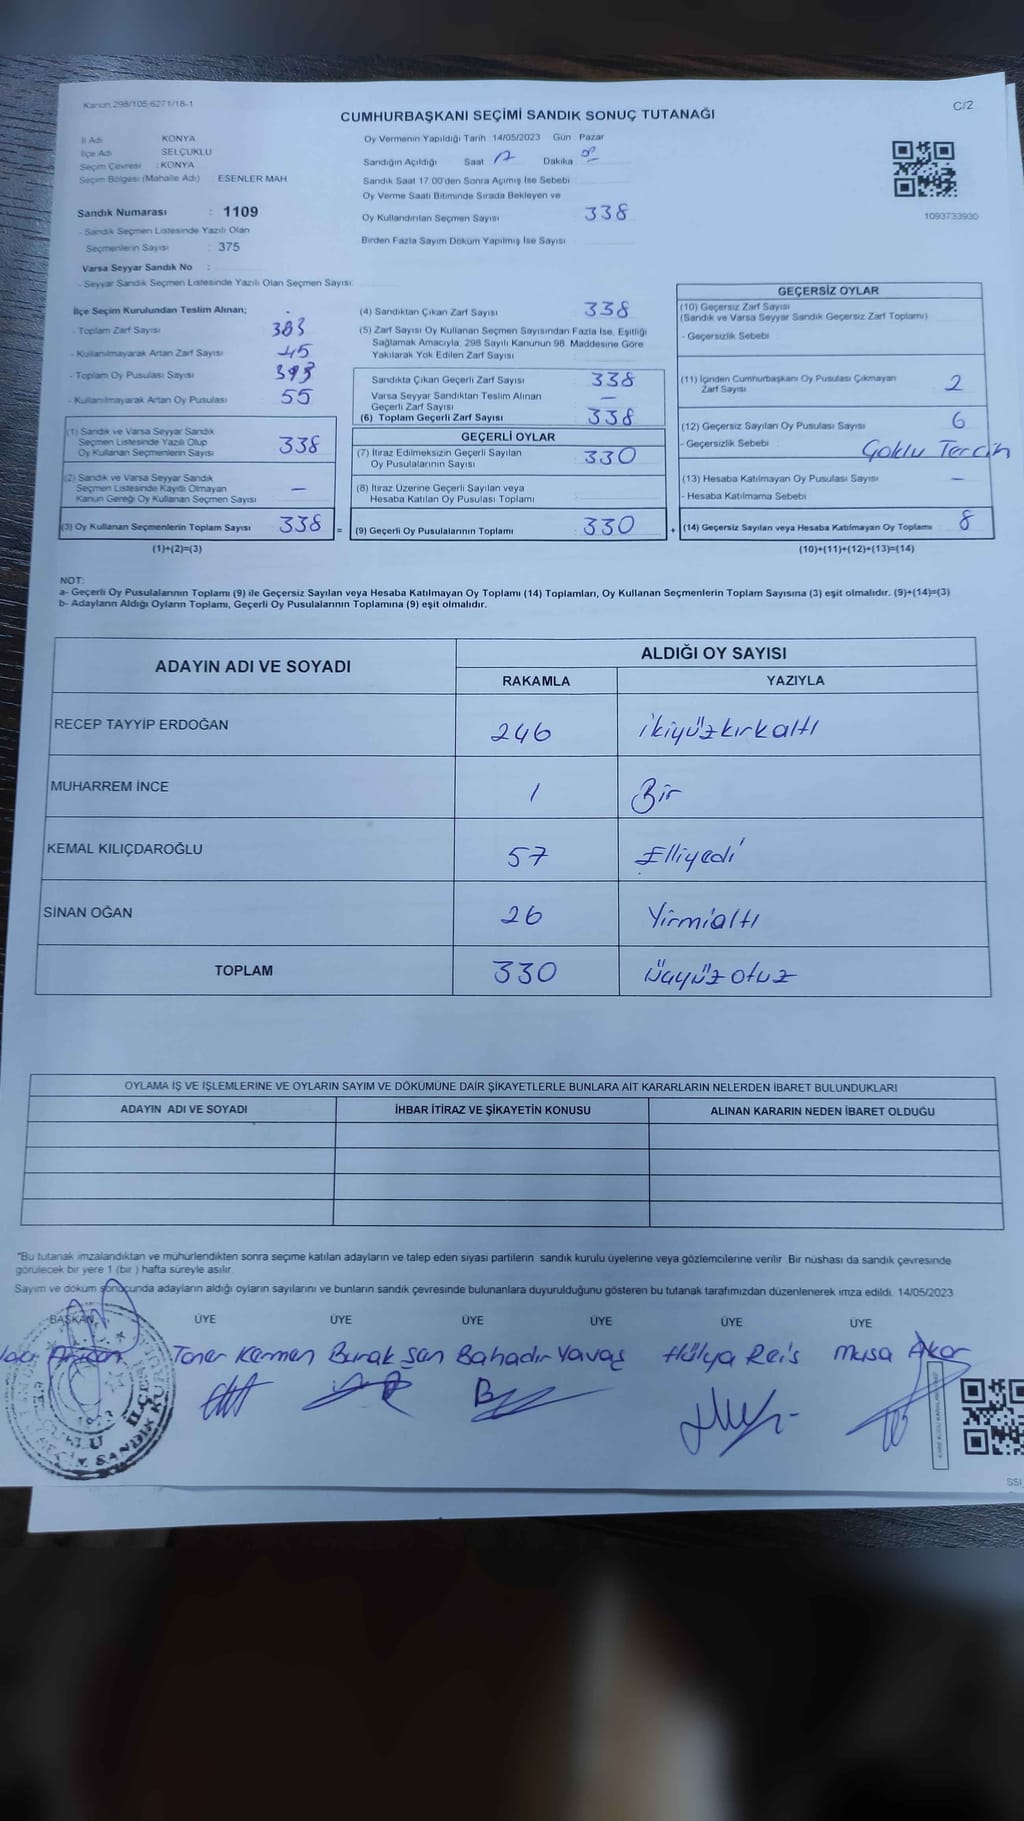 Kanun 298/105,6271/18-1
C/2
CUMHURBAŞKANI SEÇİMİ SANDIK SONUÇ TUTANAĞI
İl Adı KONYA
İlçe Adı SELÇUKLU
Seçim Çevresi : KONYA
Seçim Bölgesi (Mahalle Adı) ESENLER MAH
Sandık Numarası : 1109
- Sandık Seçmen Listesinde Yazılı Olan
Seçmenlerin Sayısı : 375
Varsa Seyyar Sandık No :
- Seyyar Sandık Seçmen Listesinde Yazılı Olan Seçmen Sayısı:
Oy Vermenin Yapıldığı Tarih 14/05/2023 Gün Pazar
Sandığın Açıldığı Saat 17 Dakika
Sandık Saat 17:00'den Sonra Açımış İse Sebebi
Oy Verme Saati Bitiminde Sırada Bekleyen ve
Oy Kullandırılan Seçmen Sayısı 338
Birden Fazla Sayım Döküm Yapılmış İse Sayısı
1093733930
İlçe Seçim Kurulundan Teslim Alınan;
- Toplam Zarf Sayısı 383
- Kullanılmayarak Artan Zarf Sayısı 45
- Toplam Oy Pusulası Sayısı 393
- Kullanılmayarak Artan Oy Pusulası 55
(1) Sandık ve Varsa Seyyar Sandık
Seçmen Listesinde Yazılı Olup
Oy Kullanan Seçmenlerin Sayısı 338
(2) Sandık ve Varsa Seyyar Sandık
Seçmen Listesinde Kayıtlı Olmayan
Kanun Gereği Oy Kullanan Seçmen Sayısı —
(3) Oy Kullanan Seçmenlerin Toplam Sayısı 338 =
(1)+(2)=(3)
(4) Sandıktan Çıkan Zarf Sayısı 338
(5) Zarf Sayısı Oy Kullanan Seçmen Sayısından Fazla İse, Eşitliği
Sağlamak Amacıyla, 298 Sayılı Kanunun 98. Maddesine Göre
Yakılarak Yok Edilen Zarf Sayısı
Sandıkta Çıkan Geçerli Zarf Sayısı 338
Varsa Seyyar Sandıktan Teslim Alınan
Geçerli Zarf Sayısı —
(6) Toplam Geçerli Zarf Sayısı 338
GEÇERLİ OYLAR
(7) İtiraz Edilmeksizin Geçerli Sayılan
Oy Pusulalarının Sayısı 330
(8) İtiraz Üzerine Geçerli Sayılan veya
Hesaba Katılan Oy Pusulası Toplamı
(9) Geçerli Oy Pusulalarının Toplamı 330 +
GEÇERSİZ OYLAR
(10) Geçersiz Zarf Sayısı
(Sandık ve Varsa Seyyar Sandık Geçersiz Zarf Toplamı)
- Geçersizlik Sebebi
(11) İçinden Cumhurbaşkanı Oy Pusulası Çıkmayan
Zarf Sayısı 2
(12) Geçersiz Sayılan Oy Pusulası Sayısı 6
- Geçersizlik Sebebi Çoklu Tercih
(13) Hesaba Katılmayan Oy Pusulası Sayısı —
- Hesaba Katılmama Sebebi
(14) Geçersiz Sayılan veya Hesaba Katılmayan Oy Toplamı 8
(10)+(11)+(12)+(13)=(14)
NOT:
a- Geçerli Oy Pusulalarının Toplamı (9) ile Geçersiz Sayılan veya Hesaba Katılmayan Oy Toplamı (14) Toplamları, Oy Kullanan Seçmenlerin Toplam Sayısına (3) eşit olmalıdır. (9)+(14)=(3)
b- Adayların Aldığı Oyların Toplamı, Geçerli Oy Pusulalarının Toplamına (9) eşit olmalıdır.
ADAYIN ADI VE SOYADI
ALDIĞI OY SAYISI
RAKAMLA YAZIYLA
RECEP TAYYİP ERDOĞAN 246 ikiyüzkırkaltı
MUHARREM İNCE 1 Bir
KEMAL KILIÇDAROĞLU 57 Elliyedi
SİNAN OĞAN 26 Yirmialtı
TOPLAM 330 üçyüz otuz
OYLAMA İŞ VE İŞLEMLERİNE VE OYLARIN SAYIM VE DÖKÜMÜNE DAİR ŞİKAYETLERLE BUNLARA AİT KARARLARIN NELERDEN İBARET BULUNDUKLARI
ADAYIN ADI VE SOYADI İHBAR İTİRAZ VE ŞİKAYETİN KONUSU ALINAN KARARIN NEDEN İBARET OLDUĞU
"Bu tutanak imzalandıktan ve mühürlendikten sonra seçime katılan adayların ve talep eden siyasi partilerin sandık kurulu üyelerine veya gözlemcilerine verilir. Bir nüshası da sandık çevresinde
görülecek bir yere 1 (bir ) hafta süreyle asılır.
Sayım ve döküm sonucunda adayların aldığı oyların sayılarını ve bunların sandık çevresinde bulunanlara duyurulduğunu gösteren bu tutanak tarafımızdan düzenlenerek imza edildi. 14/05/2023
BAŞKAN ÜYE ÜYE ÜYE ÜYE ÜYE ÜYE
Taner Kermen Burak Şen Bahadır Yavaş Hülya Reis Musa Akar
SSI